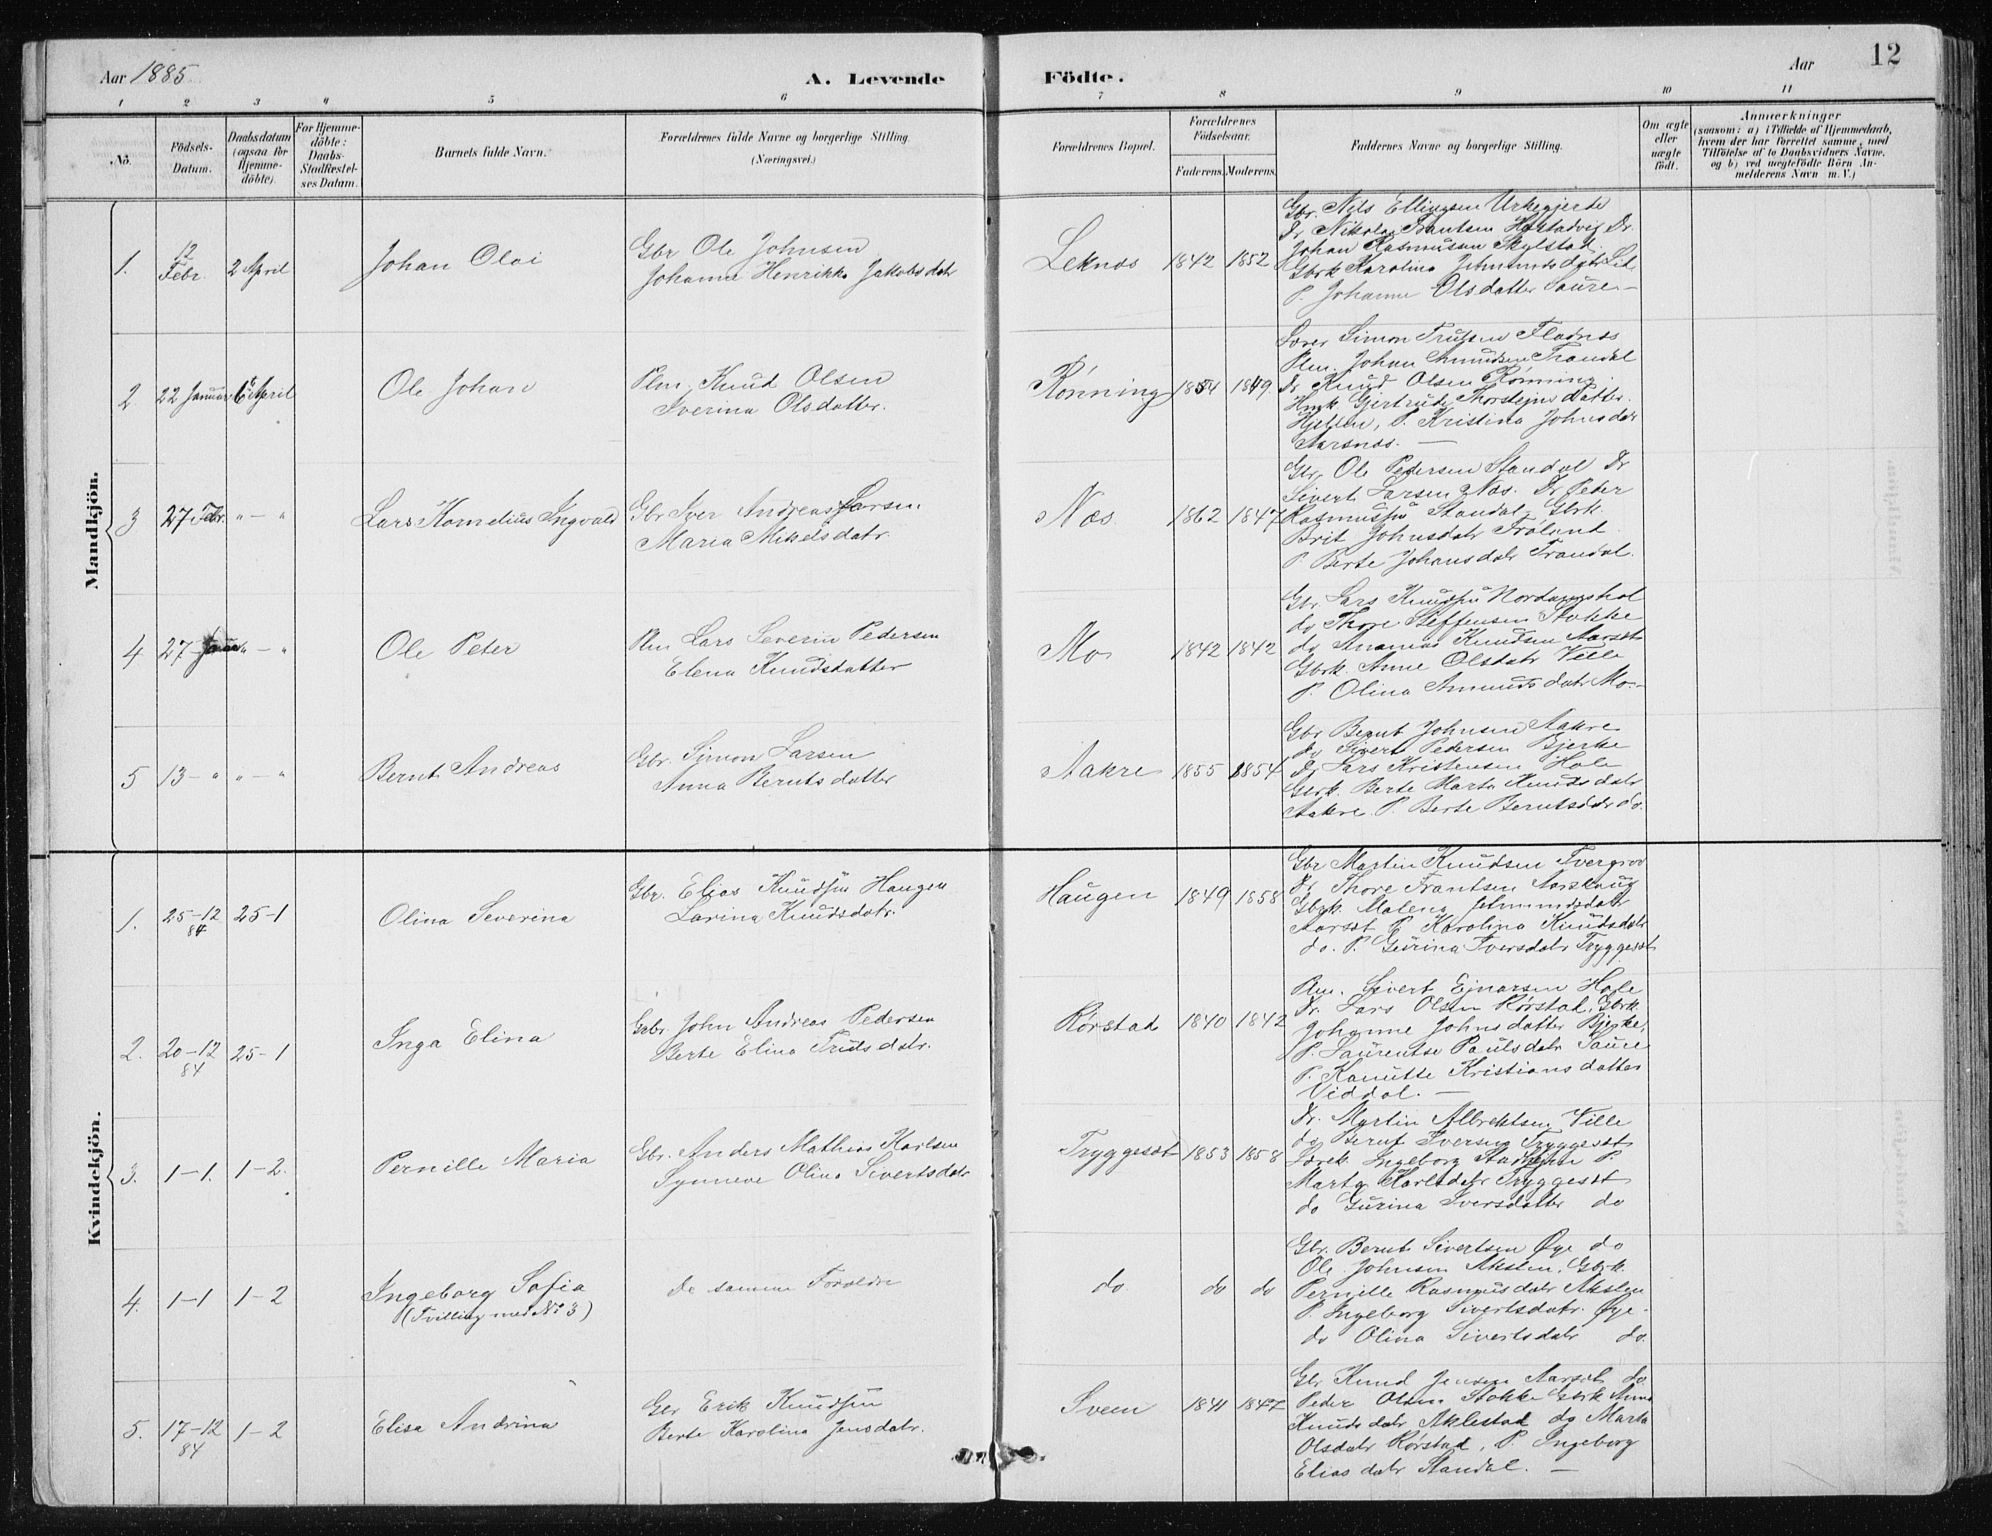 Aar 1885
A. Levende Födte.
Aar 12
1 2 3 4 5 6 7 8 9 10 11
No.
Födsels-Datum.
Daabsdatum (ogsaa for Hjemme-döbte).
For Hjemme-döbte: Daabs-Stadfæstelses Datum.
Barnets fulde Navn.
Forældrenes fulde Navne og borgerlige Stilling (Næringsvei.)
Forældrenes Bopæl.
Forældrenes Födselsaar.
Faderens. Moderens.
Faddernes Navne og borgerlige Stilling.
Om ægte eller uægte födt.
Anmærkninger
(saasom: a) i Tilfælde af Hjemmedaab,
hvem der har forrettet samme, med
Tilföielse af to Daabsvidners Navne,
og b) ved uægtefödte Börn An-
melderens Navn m. V.)
Mandkjön.
1. 12 Febr. 2 April Johan Olai
Gbr Ole Johnsen
Johanne Henrikke Jakobsdatr
Leknes 1842 1852
Gbr. Nils Ellingsen Urkegjerde
Dr. Nikolai Frantsen Hustadvig Dr.
Johan Rasmussen Skylstad.
Gbrk Karolina
P. Johanne Olsdatter Saure
2 22 Januar 6 April Ole Johan
Plm. Knud Olsen
Iverina Olsdatter.
Rønning 1854 1849.
Simon Trulsen Fladnes
Plm. Johan Amundsen Trandal
Dr Knud Olsen Rønning.
Gjertrude Thorstejnsdatter.
Hjellen, P. Kristina Johnsdatr
Aarsnes.
3 27 Febr. " — " Lars Kornelius Ingvald
Gbr Iver Andreas Larsen
Maria Mikelsdatr.
Nes 1862 1847
Gbr. Ole Pedersen Standal Dr
Sivert Larsen Nes. Dr Peter
Rasmussen Standal, Gbrk.
Brit Johnsdatr Frøland
P. Berte Johansdatr Trandal.
4 27 Januar " — " Ole Peter
Plm Lars Severin Pedersen
Elena Knudsdatter
Mo 1842 1842
Gbr Lars Knudsen Nordangshol
do Thore Steffensen Stokke
do Ananias Knudsen Aarset
Gbrk. Anne Olsdatr Ville
P. Olina Amundsdatr Mo.
5 13 - " " — " Bernt Andreas
Gbr. Simon Larsen
Anna Berntsdatter
Aakre 1855 1854
Gbr Bernt Johnsen Aakre
do Sivert Pedersen Bjerke
Dr Lars Kristensen Hole
Gbrk. Berte Marta Knudsdatr
Aakre. P. Berte Berntsdatr do.
Kvindekjön.
1. 25-12 84 25-1 Olina Severina
Gbr. Elias Knudsen Haugen
Larina Knudsdatr.
Haugen 1849 1858
Gbr Martin Knudsen Tvergrov
Dr Thore Frantsen Aarskaug
Gbrk. Malena
Aarset P. Karolina Knudsdatr
do. P. Gurina Iversdatr Tryggeset
2. 20-12 84 25-1 Inga Elina
Gbr. John Andreas Pedersen
Berte Elina Trulsdatr.
Rørstad 1840 1842
Plm. Sivert Ejnarsen Hole
Dr. Lars Olsen Rørstad, Gbrk.
Johanne Johnsdatter Bjerke,
P. Laurentse Paulsdatr Saure
P. Kanutte Kristiansdatter
Viddal.
3. 1-1. 1-2. Pernille Maria
Gbr. Anders Mathias Karlsen
Synneve Olina Sivertsdatr
Tryggeset 1853 1858
Dr. Martin Albrektsen Ville
do Bernt Iversen Tryggeset
Ingeborg P.
Marta Karlsdatr Tryggeset
do Gurina Iversdatter do
4. 1-1 1-2 Ingeborg Sofia
(Tvilling med No 3)
De samme Forældre
do do do
Gbr. Bernt Sivertsen Øye do
Ole Johnsen Akslen, Gbrk.
Pernille Rasmusdatr Akslen
P. Ingeborg Sivertsdatr. Øye.
do Olina Sivertsdatr do.
5. 17-12 84 1-2 Elisa Andrina
Gbr Erik Knudsen
Berte Karolina Jensdatr.
Sveen 1841 1847
Gbr Knud Jensen Aarset do
Peder Olsen Stokke Gbrk Anna
Knudsdatr Aklestad do Marta
Olsdatr Rørstad, P. Ingeborg
Eliasdatr Standal.